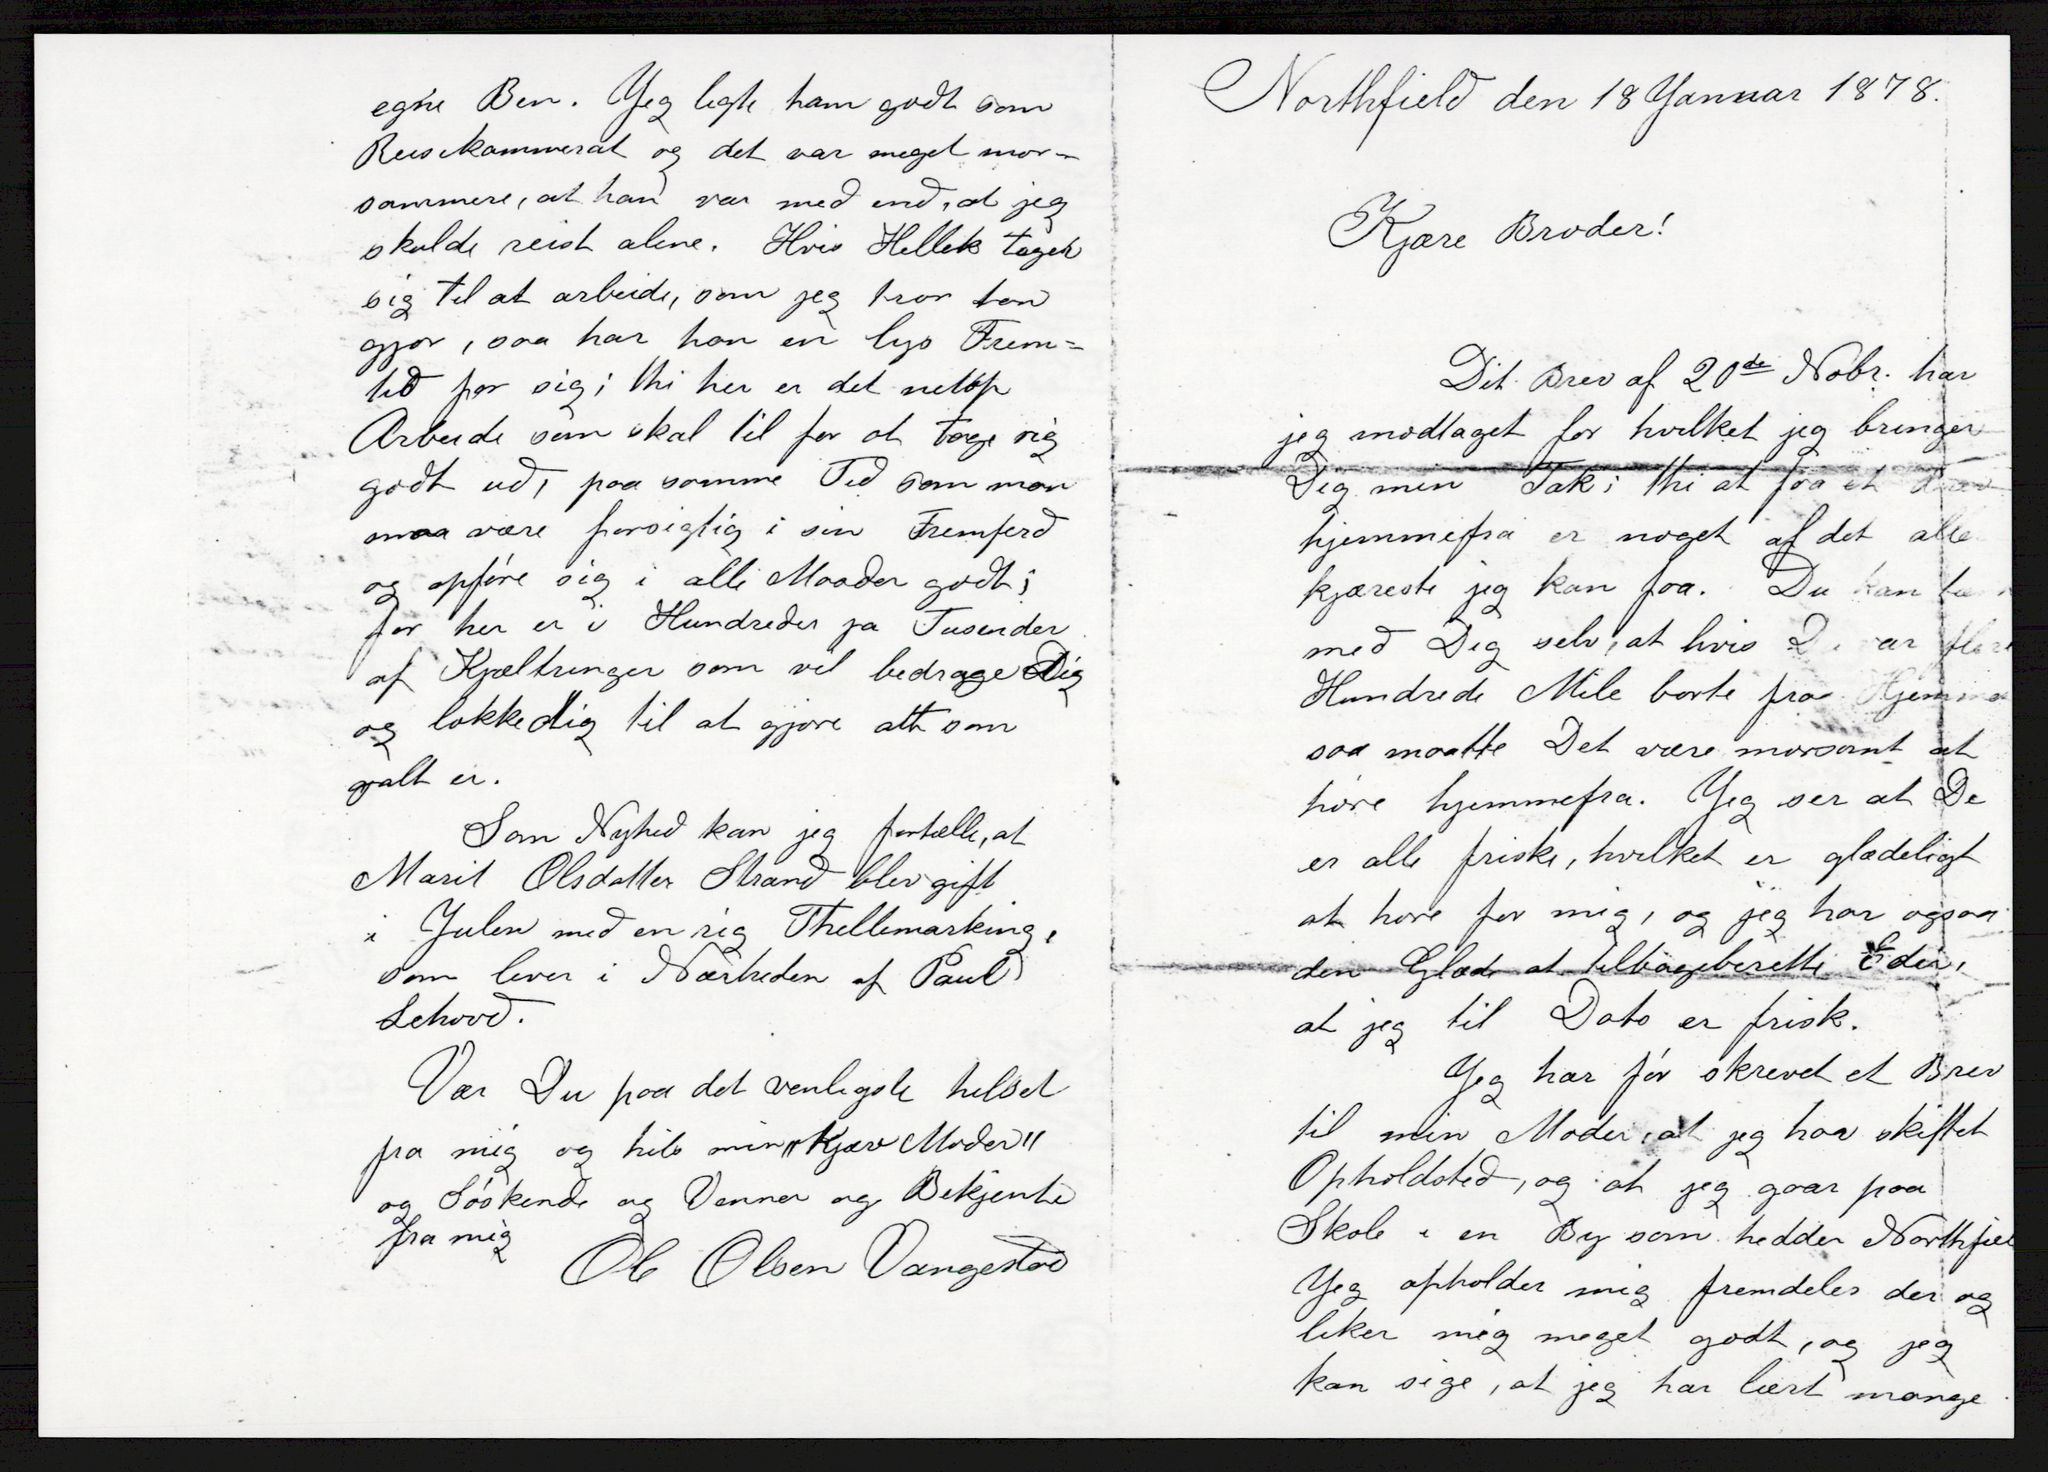 egne Ben. Jeg ligte ham godt som
Reisekammerat og det var meget mor-
sommere, at han var med end, at jeg
skulde reist alene. Hvis Hellek tager
sig til at arbeide, som jeg tror han
gjør, saa har han en lys Frem-
tid for sig; thi her er det netop
Arbeide som skal til for at tage sig
godt ud, paa samme Tid som man
maa være forsigtig i sin Fremferd
og opføre sig i alle Maader godt;
for her er i Hundreder ja Tusender
af Kjæltringer som vil bedrage Dig
og lokke dig til at gjøre alt som
galt er.
Som Nyhed kan jeg fortælle, at
Marit Olsdatter Strand blev gift
i Julen med en rig Thellemarking,
som lever i Nærheden af Paul
Sehovd.
Vær Du paa det venligste hilset
fra mig og hils min "Kjære Moder"
og Søskende og Venner og Bekjente
fra mig
Ole Olsen Vangestad
Northfield den 18 Januar 1878.
Kjære Broder!
Dit Brev af 20de Nobr. har
jeg modtaget for hvilket jeg bringer
Dig min Tak; thi at faa et Brev
hjemmefra er noget af det aller
kjæreste jeg kan faa. Du kan
med Dig selv, at hvis Du var flere
Hundrede Mile borte fra Hjemmet
saa maatte Det være morsomt at
høre hjemmefra. Jeg ser at De
er alle friske, hvilket er glædeligt
at høre for mig, og jeg har ogsaa
den Glæde at tilbageberette Eder,
at jeg til Dato er frisk.
Jeg har før skrevet et Brev
til min Moder, at jeg har skiftet
Opholdsted, og at jeg gaar paa
Skole i en By som hedder Northfiel
Jeg opholder mig fremdeles der og
liker mig meget godt, og jeg
kan sige, at jeg har lært mange